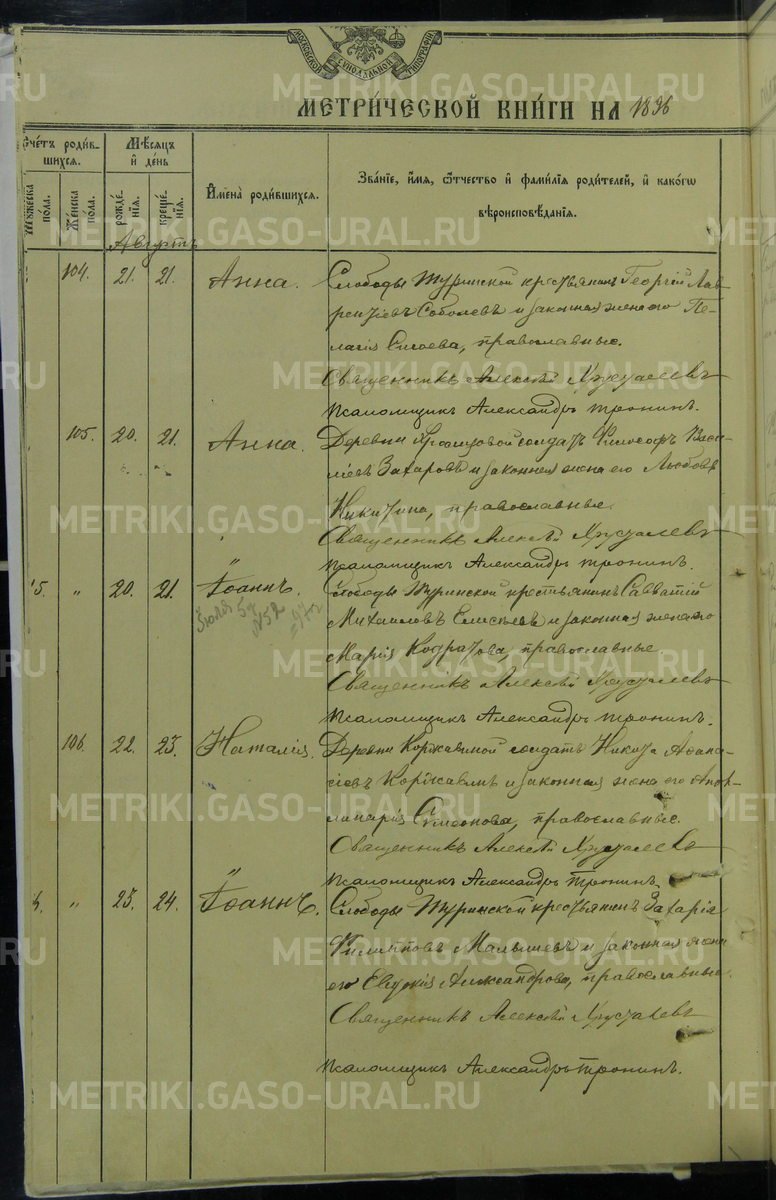 МОСКОВСКОЙ СУНОДАЛЬНОЙ ТИПОГРАФІИ
МЕТРИ́ЧЕСКОЙ КНИ́ГИ НА 1896
Счётъ роди́в-
шихся.
Мѣ́сяцъ
и҆ де́нь
И҆мена̀ роди́вшихся.
Зва́нїе, и҆́мя, ѻ҆́тчество и҆ фами́лїя роди́телей, и҆ како́гѡ
вѣроисповѣ́данїя.
Му́жеска по́ла.
Же́нска по́ла.
рожде́нїѧ.
креще́нїѧ.
Августъ
104. 21. 21. Анна. Слободы Туринской крестьянинъ Георгій Лав-
рентіевъ Соболевъ и законная жена его Пе-
лагія Сисоева, православные.
Священникъ Алексій Хрусталевъ
Псаломщикъ Александръ Тронинъ.
105. 20. 21. Анна. Деревни солдатъ Философъ Васи-
ліевъ Захаровъ и законная жена его Любовь
Никитина, православные.
Священникъ Алексій Хрусталевъ
Псаломщикъ Александръ Тронинъ.
5. " 20. 21. Іоаннъ. Слободы Туринской крестьянинъ Савватій
Михаиловъ Елисѣевъ и законная жена его
Марія Кодратова, православные.
Священникъ Алексій Хрусталевъ
Псаломщикъ Александръ Тронинъ.
106. 22. 23. Наталія. Деревни Коржавиной солдатъ Никита Аѳана-
сіевъ Коржавинъ и законная жена его Апол-
линарія Симеонова, православные.
Священникъ Алексій Хрусталевъ
Псаломщикъ Александръ Тронинъ.
" 23. 24. Іоаннъ. Слободы Туринской крестьянинъ Захарія
Филипповъ Малышевъ и законная жена
его Евдокія Александрова, православные.
Священникъ Алексій Хрусталевъ
Псаломщикъ Александръ Тронинъ.
METRIKI.GASO-URAL.RU